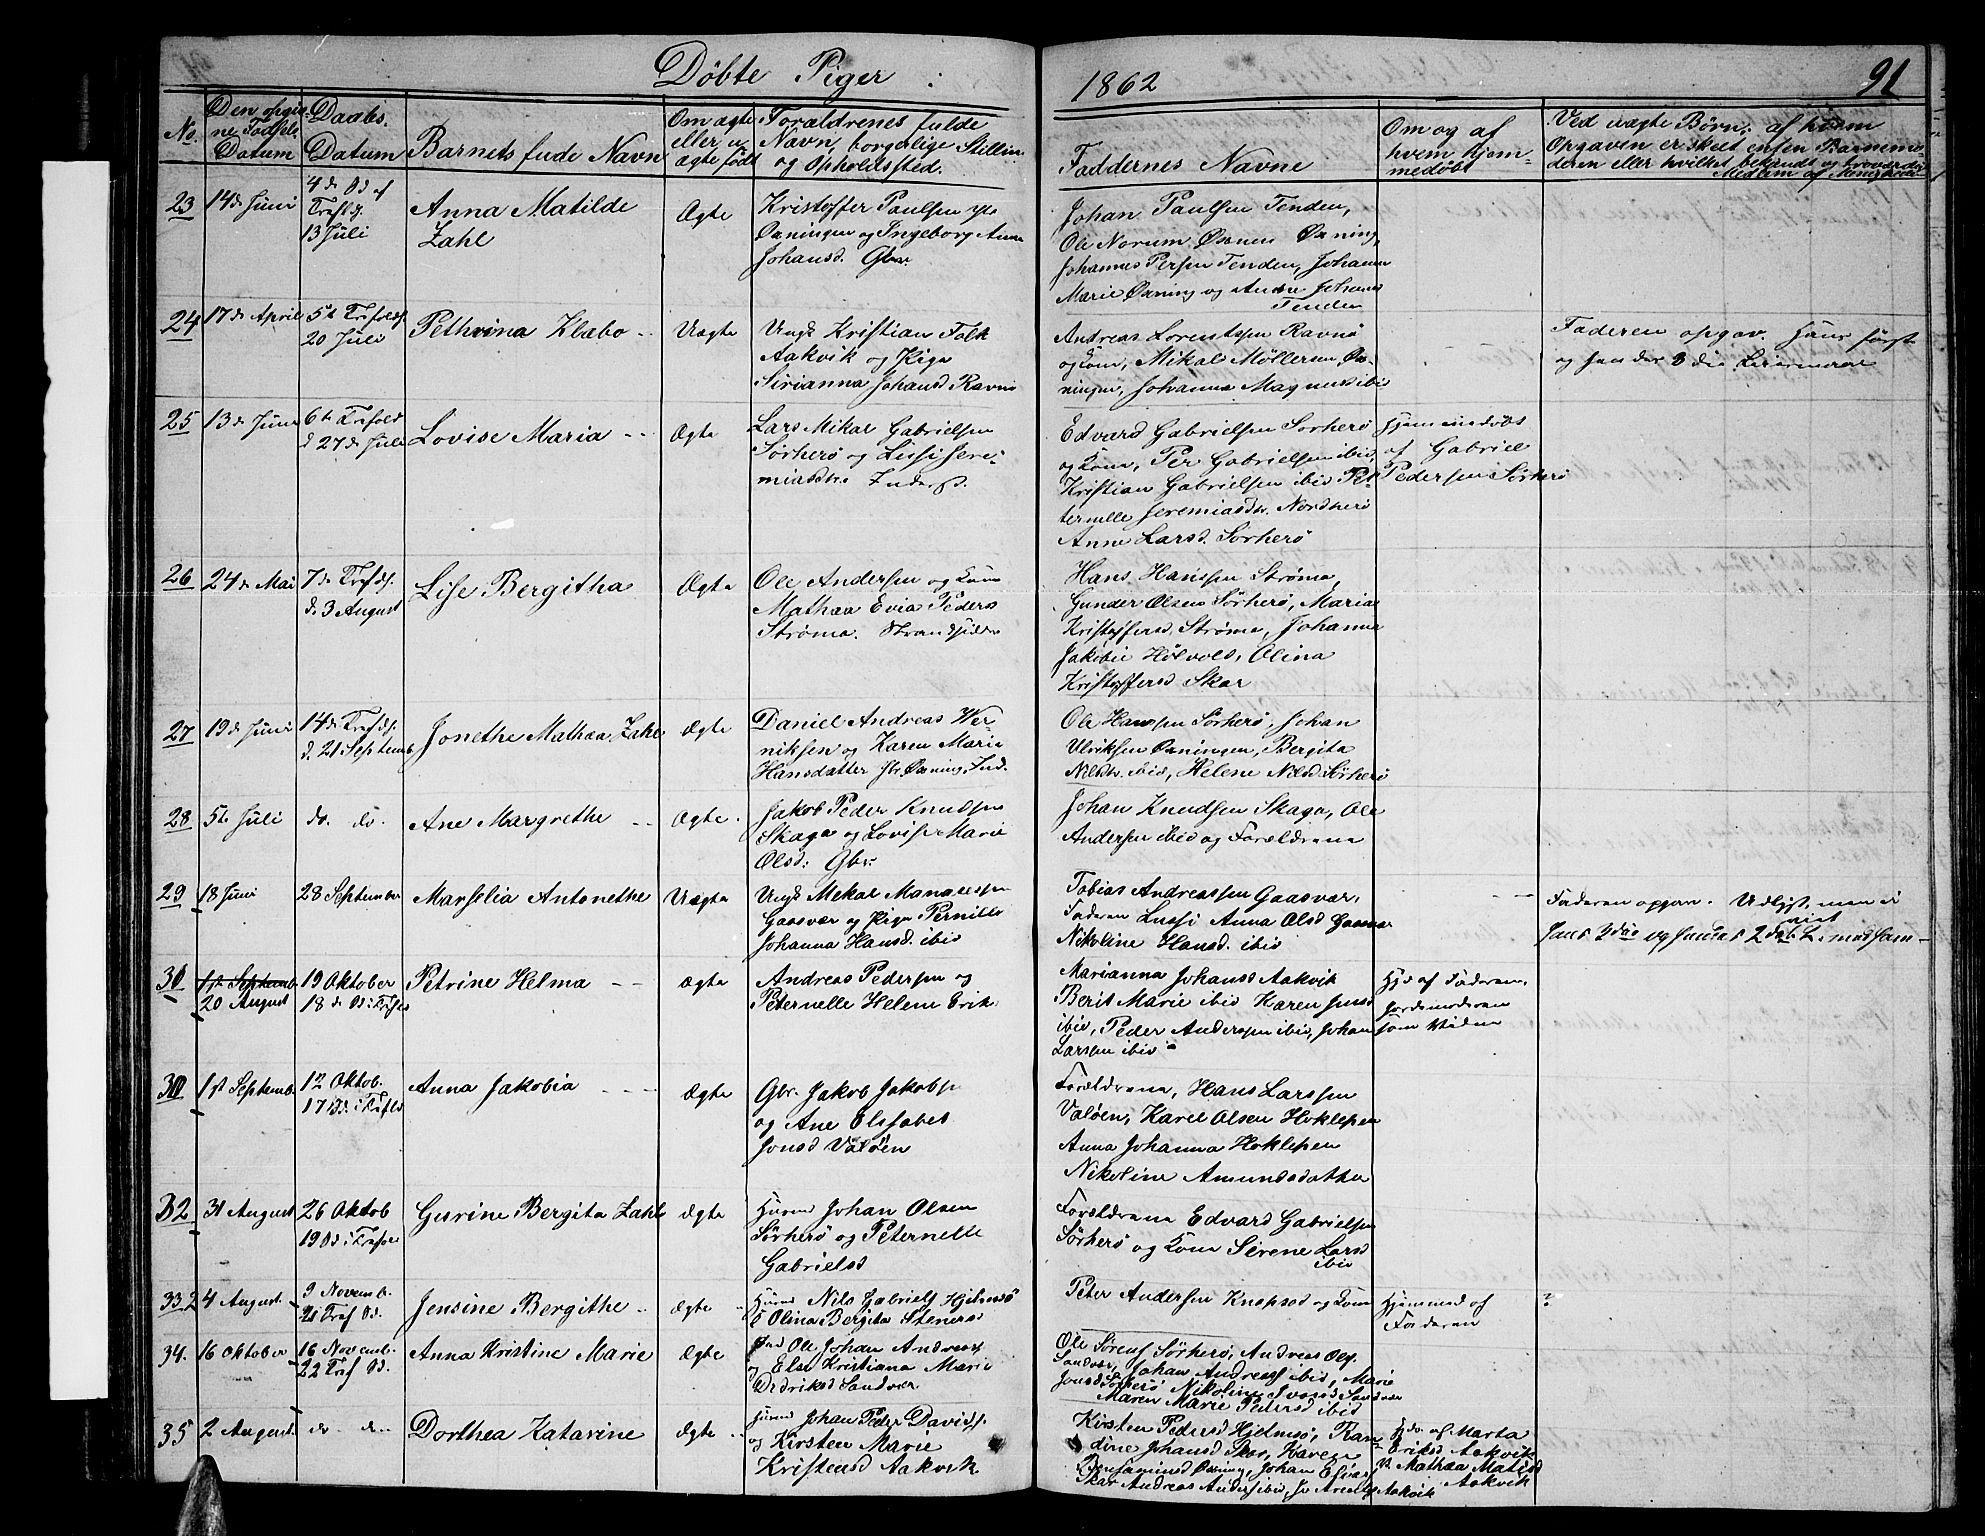 Döbte Piger :
1862
91
No.
Den opgiv-
ne Fødsels
Datum
Daabs-
Datum
Barnets fude Navn
Om ægte
eller u-
ægte født
Forældrenes fulde
Navn, borgerlige Stilling
og Opholdssted.
Faddernes Navne
Om og af
hvem hjem-
medøbt
Ved uægte Børn: af hvem
Opgaven er skeet enten Barnemo-
deren eller hvilket bekendt og troværdig
Medlem af Menigheden
23
14de Juni
4de Sd af
Trefdg.
13 Juli
Anna Matilde
Zahl
Ægte
Kristoffer Paulsen
Øxningen og Ingeborg Anna
Johansd. Gbr.
Johan Paulsen Tenden,
Ole Norum Øxnen Øxning,
Johannes Persen Tenden, Johanna
Marie Øxning og Andrea Johans
Tenden
24
17de April
5te Trefoldf
20 Juli
Pethrina Klæbo
Uægte
Ungk Kristian Falk
Aakvik og Pige
Sirianna Johansd Ravnø
Andreas Lorentsen Ravnø
og Kone, Mikal Møllersen Øx-
ningen, Johanna Magnus ibid
Faderen opgav. Hans først
og hendes 3die Leiermaal
25
13de Juni
6te Trefold
d 27de Juli
Lovise Maria
Ægte
Lars Mikal Gabrielsen
Sørherø og Lusi Jere-
miasdtr. Inderst.
Edvard Gabrielsen Sørherø
og Kone, Per Gabrielsen ibid,
Kristian Gabrielsen ibid Pet-
ternelle Jeremiasdr. Nordherø
Anne Larsd. Sørherø
Hjemmedøbt
af Gabriel
Pedersen Sørherø
26
24de Mai
7de Trefdg.
d. 3 August
Lise Bergitha
Ægte
Ole Andersen og Kone
Mathea Evia Peders
Strøma. Strandsidder
Hans Hanssen Strøma,
Gunder Olsen Sørherø, Maria
Kristoffersd. Strøma, Johanna
Jakobie Holvold, Olina
Kristoffersd Skar
27
19de Juni
14de Trefdg.
d. 21 Septemb.
Jonethe Mathea Zahl
Ægte
Daniel Andreas Wer-
niksen og Karen Marie
Hansdatter Øxning, Ind.
Ole Hanssen Sørherø, Johan
Ulriksen Øxningen, Bergita
Nilsdr. ibid, Helene Nilsd. Sørherø
28
5te Juli
do. do.
Ane Margrethe
Ægte
Jakob Peder Knudsen
Skaga og Lovise Marie
Olsd. Gbr.
Johan Knudsen Skaga, Ole
Andersen ibid og Forældrene
29
18 Juni
28 September
Marselia Antonethe
Uægte
Ungk Mekal Manasessen
Gaasvær og Pige Pernille
Johanna Hansd. ibid
Tobias Andreassen Gaasvær,
Faderen Lussi Anna Olsd Gaasvær
Nikoline Hansd. ibid
Faderen opgav. Udlagt, men ei
viet
Hans 2die og hendes 2det L. med ham
31
1st Septemb.
20 August
19 Oktober
18de Sd i Trefo
Petrine Helma
Ægte
Andreas Pedersen og
Peternelle Helene Erik
Marianna Johansd Aakvik
Berit Marie ibid Karen Jensd
ibid, Peder Andersen ibid, Johan
Larssen ibid
Hjd af Faderen,
Jordmoderen
som Vidne
30
1st Septemb.
12 Oktob.
17 Sd. i Trefld
Anna Jakobia
Ægte
Gbr. Jakob Jakobs
og Ane Elisabet
Jonsd Valøen
Forældrene, Hans Larssen
Valøen, Karel Olsen Hoklepen
Anna Johanna Hoklepen
Nikoline Amundsdatter
32
31 August
26 Oktob
19 Sd i Trefol
Gurine Bergita Zahl
Ægte
Huusmd Johan Olsen
Sørherø og Peternelle
Gabrielsd
Forældrene Edvard Gabrielsen
Sørherø og Kone Sirene Larsd
ibid
33
4 August
9 Novemb.
21 Tref Sd.
Jensine Bergithe
Ægte
Huusmd Nils Gabriels Hjelmsø
& Olina Bergita Stenersd
Peter Andersen Knopsod og Kone
Hjemmed af
Faderen
?
34.
16 Oktober
16 Novemb.
22 Tref Sd.
Anna Kristine Marie
Ægte
Ind Ole Johan Andreas
og Else Kristiana Marie
Didriksd Sandvær
Ole Sørens Sørherø, Andreas Ols
Sandvær, Johan Andreas ibid, Marie
Jonsd Sørherø Nikoline Ivarsd Sandvær
Maren Marie Pedersd ibid
35
2 August.
do do
Dorthea Katarine
Ægte
Huusmd Johan Peder Davids
og Kirsten Marie
Kristensd Aakvik
Kirsten Pedersd Hjelmsø, Ran-
dine Johansd Skar, Karen
Bensaminsd Øxning, Johan Elias
Skar Andreas Anders ibid,
Hjd. af Marta
Eriksd Aakvik
V. Mathea Matisd
Aakvik Aakvik